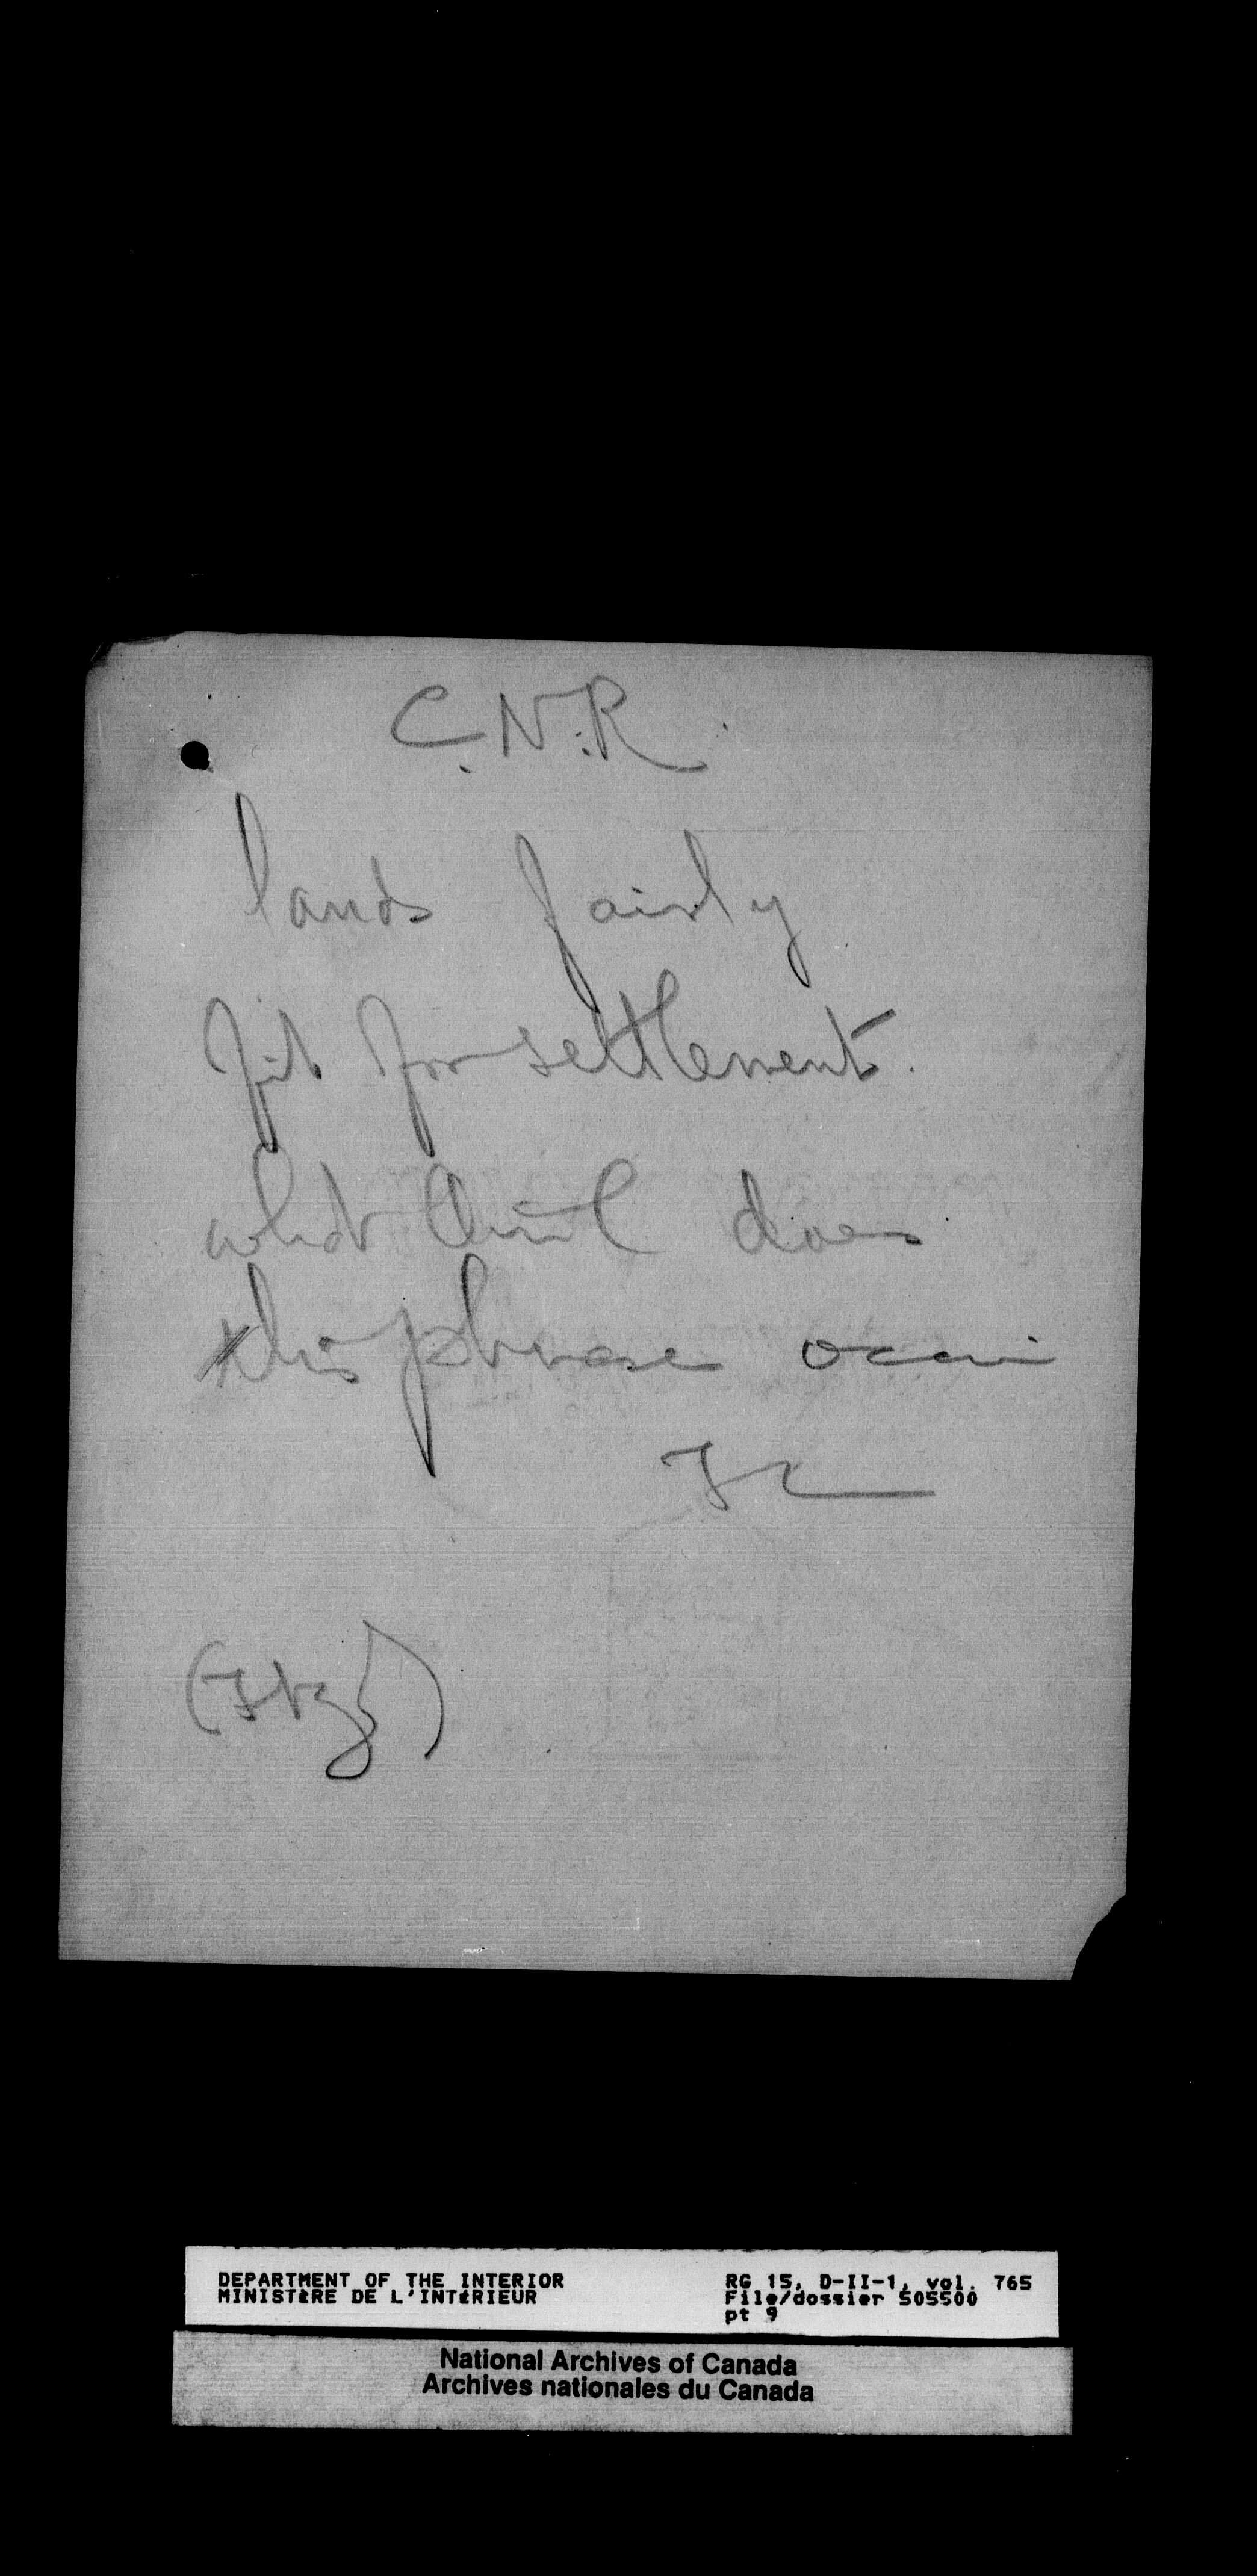 C.N.R.
lands fairly
fit for settlement.
what does
this phrase occur
DEPARTMENT OF THE INTERIOR
MINISTÈRE DE L'INTÉRIEUR
RG 15, D-II-1, vol. 765
File/dossier 505500
pt 9
National Archives of Canada
Archives nationales du Canada